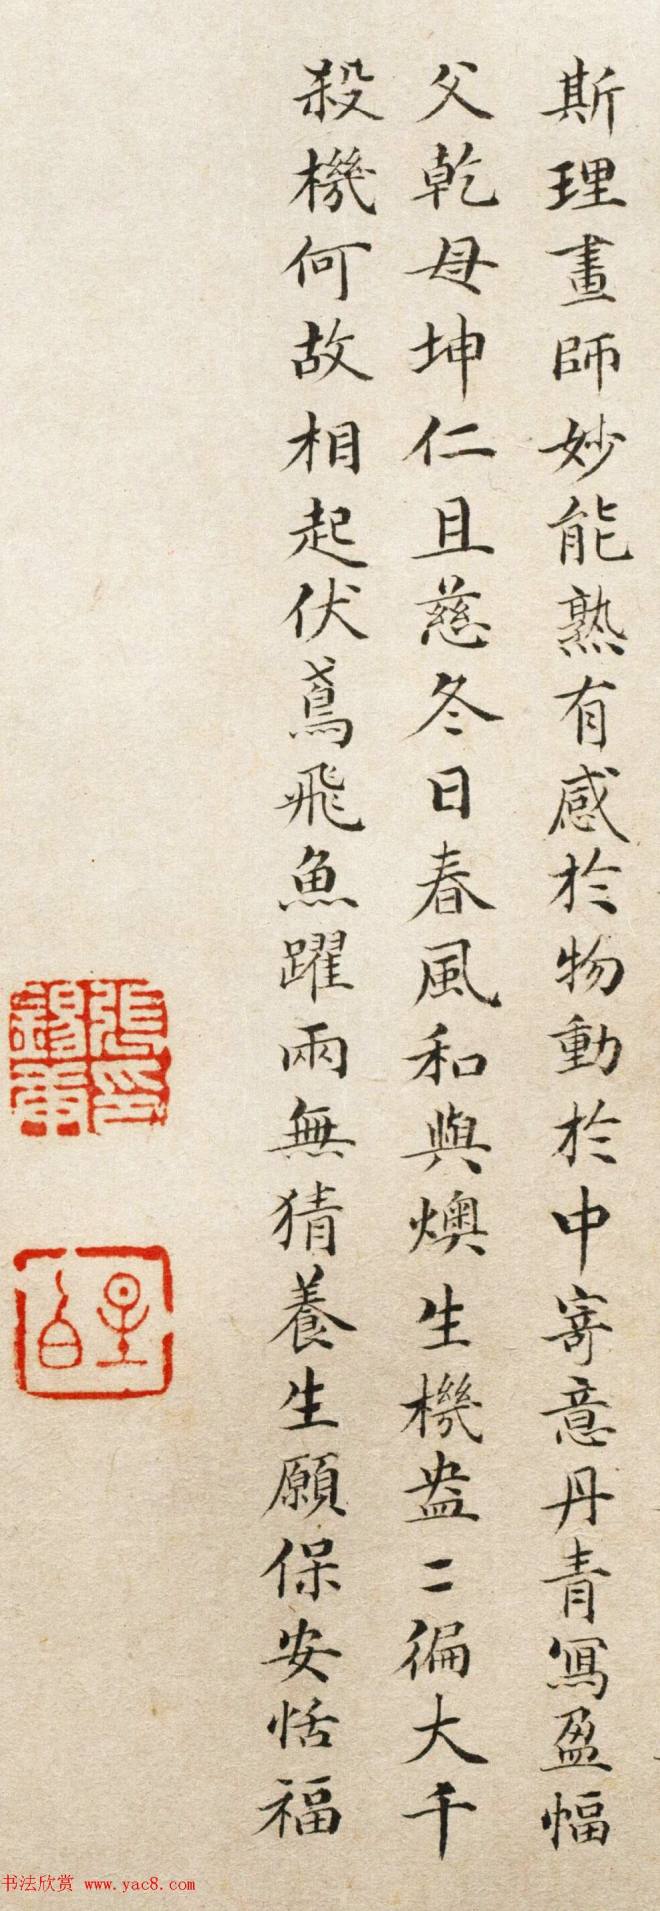 斯理畫師妙能熟有感於物動於中寄意丹青寫盈幅
父乾母坤仁且慈冬日春風和與燠生機盎〻徧大千
殺機何故相起伏鳶飛魚躍兩無猜養生願保安恬福
书法欣赏 www.yac8.com